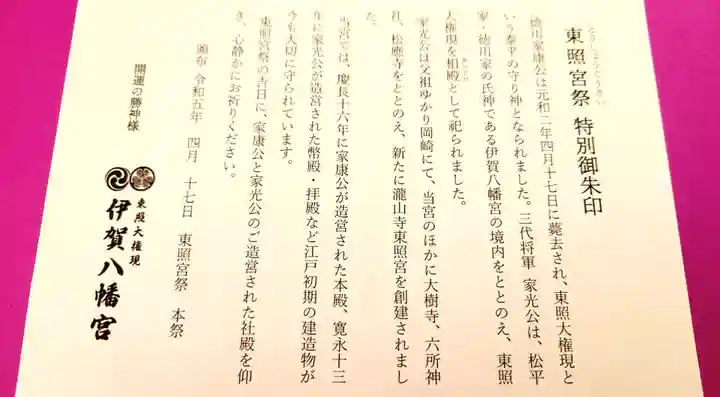 とうしょうぐうさい
東照宮祭 特別御朱印
徳川家康公は元和二年四月十七日に薨去され、東照大権現と
いう泰平の守り神となられました。三代将軍 家光公は、松平
家・徳川家の氏神である伊賀八幡宮の境内をととのえ、東照
大権現を相殿として祀られました。
家光公は父祖ゆかり岡崎にて、当宮のほかに大樹寺、六所神
社、松應寺をととのえ、新たに瀧山寺東照宮を創建されまし
た。
当宮では、慶長十六年に家康公が造営された本殿、寛永十三
年に家光公が造営された幣殿・拝殿など江戸初期の建造物が
今も大切に守られています。
東照宮祭の吉日に、家康公と家光公のご造営された社殿を仰
ぎ、心静かにお祈りください。
頒布 令和五年 四月 十七日 東照宮祭 本祭
開運の勝神様
東照大権現
伊賀八幡宮